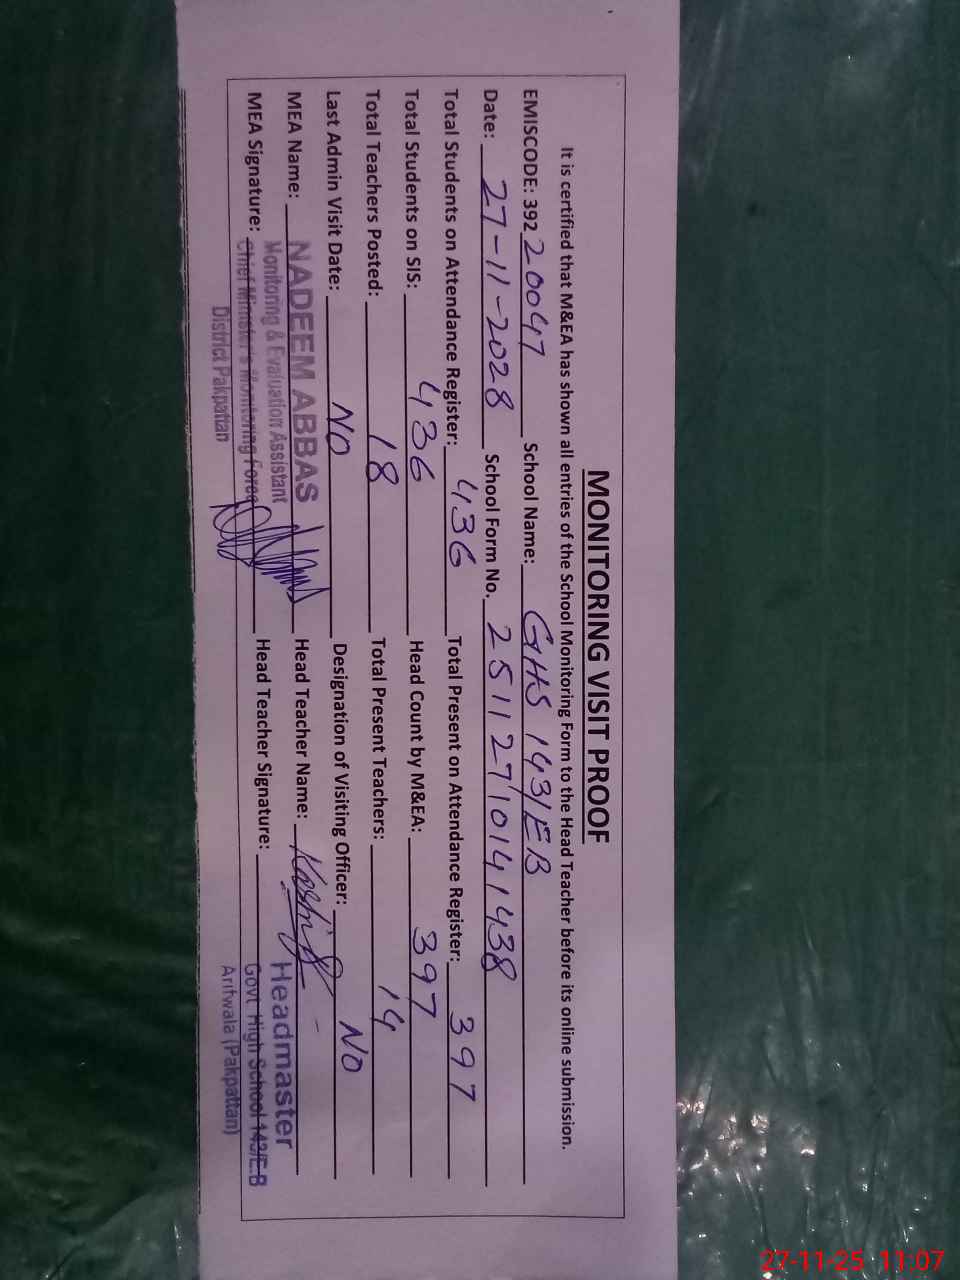 MONITORING VISIT PROOF
It is certified that M&EA has shown all entries of the School Monitoring Form to the Head Teacher before its online submission.
EMISCODE: 39220047 School Name: GHS 143/EB
Date: 27-11-2028 School Form No. 25112710141438
Total Students on Attendance Register: 436 Total Present on Attendance Register: 397
Total Students on SIS: 436 Head Count by M&EA: 397
Total Teachers Posted: 18 Total Present Teachers: 14
Last Admin Visit Date: NO Designation of Visiting Officer: NO
MEA Name: NADEEM ABBAS Head Teacher Name: Kashif
Monitoring & Evaluation Assistant Headmaster
MEA Signature: Chief Minister's Monitoring Force Head Teacher Signature: Govt High School 143/E.B
District Pakpattan Arifwala (Pakpattan)
27-11-25 11:07